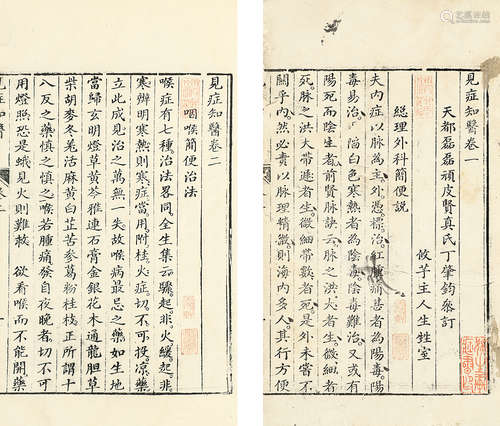 見症知醫卷一
天都磊磊頑皮賢真氏丁肇鈞參訂
攸芋主人生甡室
總理外科簡便說
夫内症以脉為主外憑標治紅腫痛甚者為陽毒陽
毒易治陷白色寒熱者為陰毒陰毒難治又或有
陽死而陰生者前賢脉訣云脉之洪大者生微細者
死脉之洪大帶遲者生微細帶數者死是外未嘗不
關乎内然必責以脉理精微則海内多人其行方便
見症知醫卷二
咽喉簡便治法
喉症有七種治法畧同全生集云驟起非火緩起非
寒辦明寒熱則寒症當用附桂火症切不可投凉藥
立此成見治之萬無一失故喉病最忌之藥如生地
當歸玄明燈草黄芩雅連石膏金銀花木通龍胆草
柴胡麥冬羌活麻黄白芷苦參葛粉桂枝正所謂十
八反之藥慎之慎之喉若腫痛發自夜晚者切不可
用燈照恐是蛾見火則難救 欲看喉而不能開藥
見症知醫 卷二